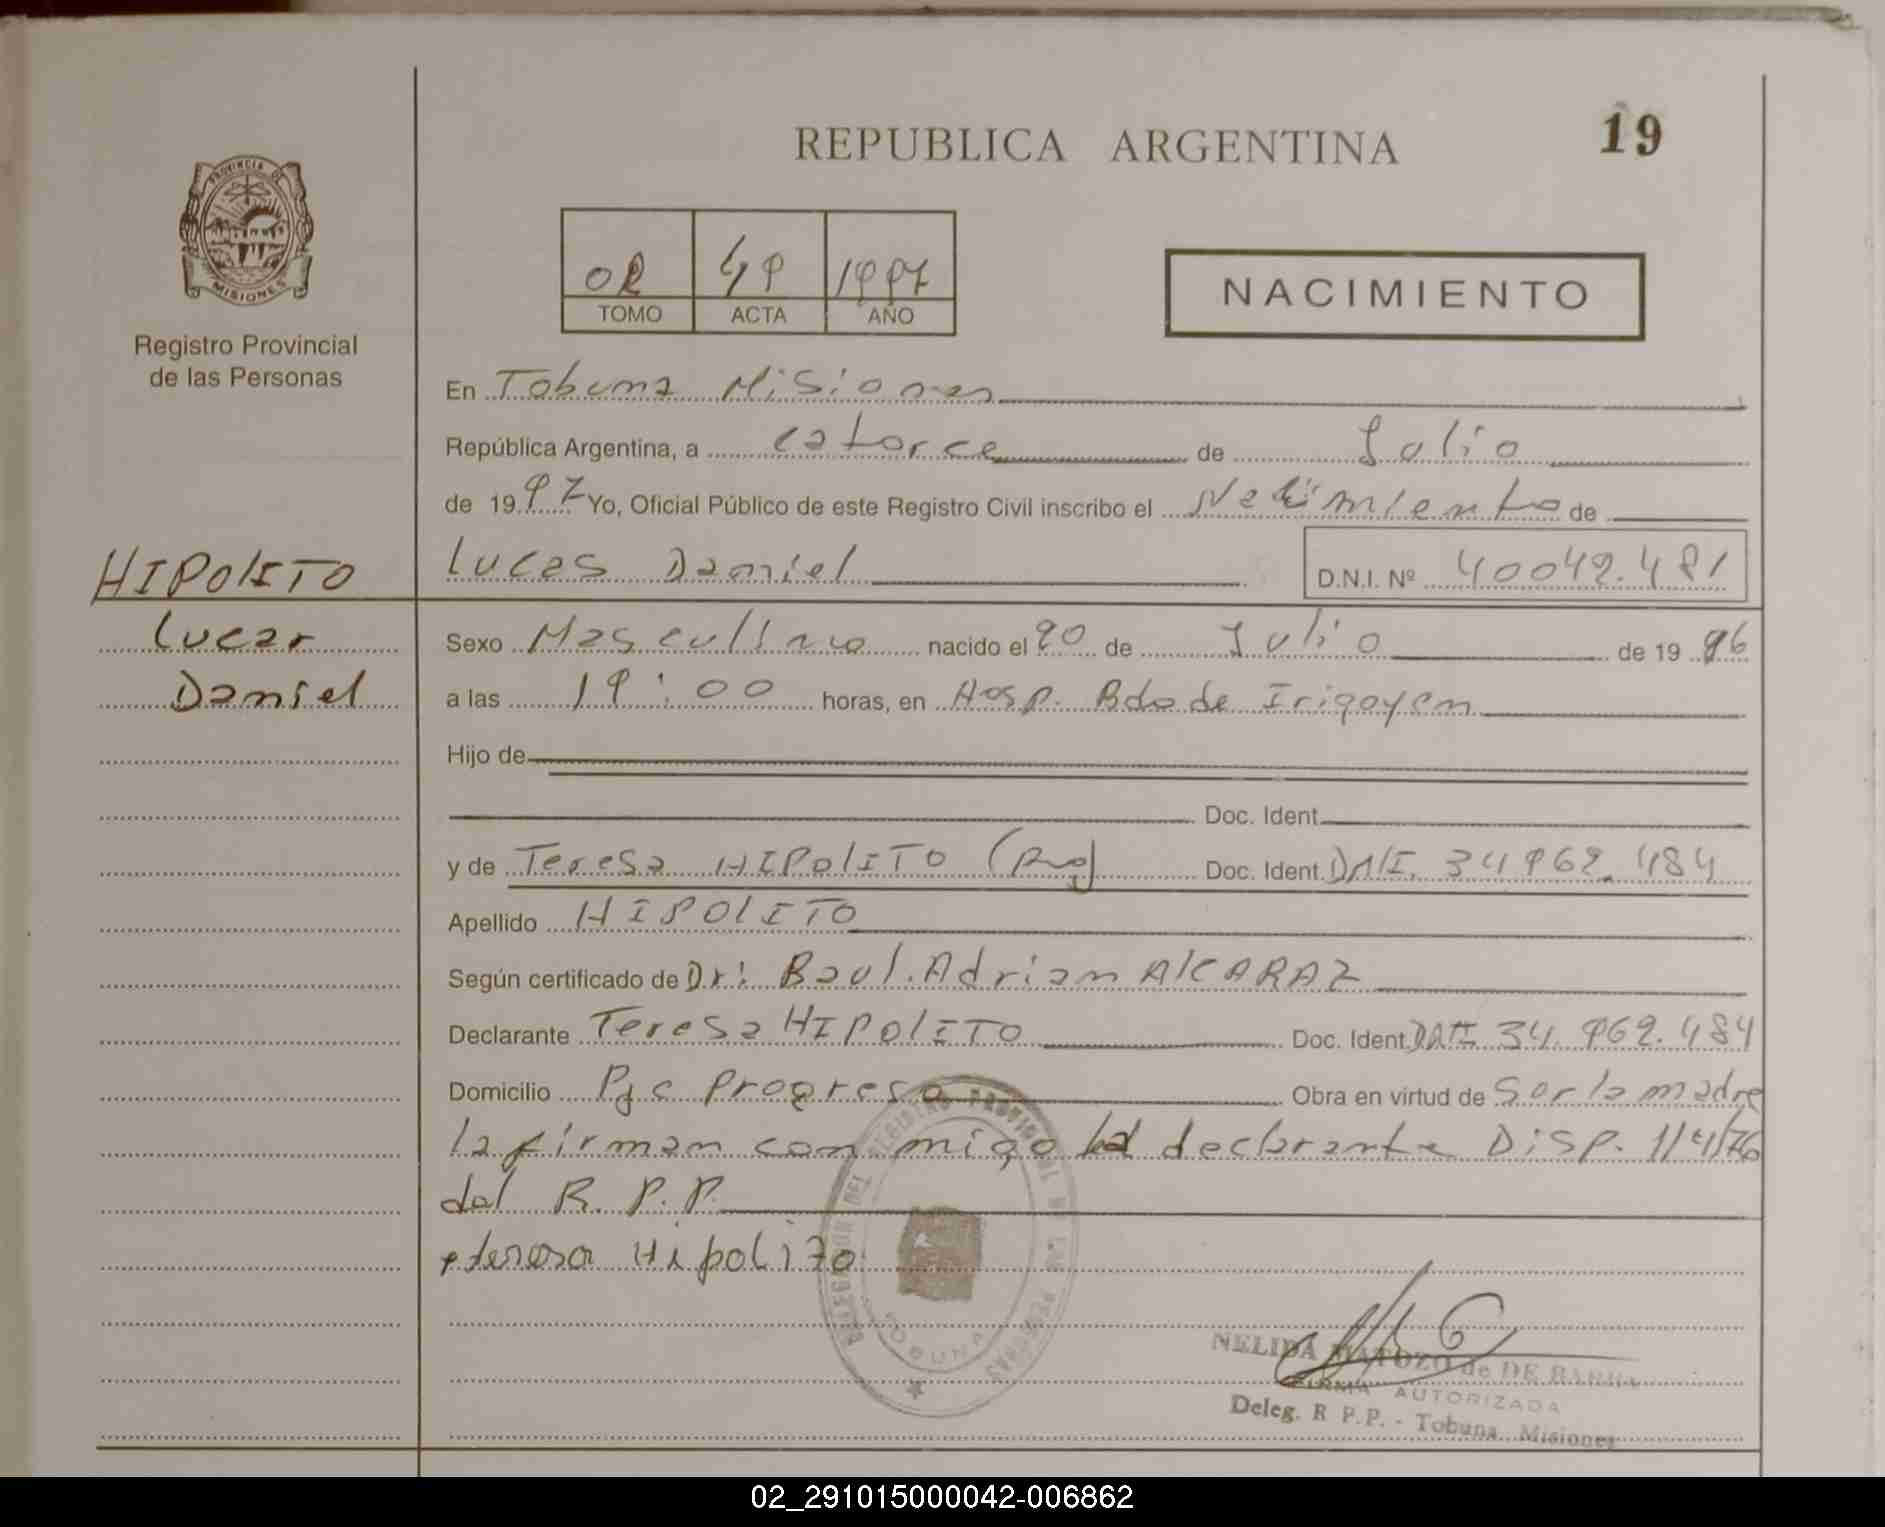 REPUBLICA ARGENTINA
19
PROVINCIA DE
MISIONES
Registro Provincial
de las Personas
02 49 1997
TOMO ACTA AÑO
NACIMIENTO
En Tobuna Misiones
República Argentina, a catorce de Julio
de 1997 Yo, Oficial Público de este Registro Civil inscribo el Nacimiento de
HIPOLITO
Lucas Daniel D.N.I. Nº 40042.491
Lucas
Daniel
Sexo Masculino nacido el 20 de Julio de 1996
a las 19:00 horas, en Hosp. Bdo de Irigoyen
Hijo de
Doc. Ident.
y de Teresa HIPOLITO Doc. Ident. DNI. 34962.484
Apellido HIPOLITO
Según certificado de Dr: Raul. Adrian AlCARAZ
Declarante Teresa HIPOLITO Doc. Ident. DNI 34.962.484
Domicilio Pje Progreso Obra en virtud de Ser la madre
la firman con migo la declarante Disp. 1/4/76
del R.P.P.
teresa Hipolito
DELEGACION DEL REGISTRO PROVINCIAL DE LAS PERSONAS
TOBUNA
NELIDA MATOZO de DE BARRA
FIRMA AUTORIZADA
Deleg. R P.P. - Tobuna Misiones
02_291015000042-006862